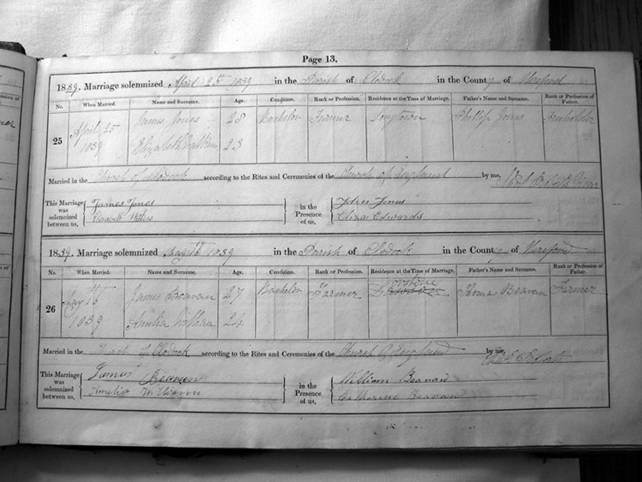 Page 13.
1839. Marriage solemnized April 25th 1839 in the Parish of Clodock in the County of Hereford
No. When Married. Name and Surname. Age. Condition. Rank or Profession. Residence at the Time of Marriage. Father's Name and Surname. Rank or Profession of Father.
25 April 25 James Jones 28 Bachelor Farmer Longtown Phillip Jones Freeholder
1839 Elizabeth 23
Married in the Church of Clodock according to the Rites and Ceremonies of the Church of England by me,
This Marriage was solemnized between us, James Jones in the Presence of us, Jones
Eliza Edwards
1839. Marriage solemnized May 16 1839 in the Parish of Clodock in the County of Hereford
No. When Married. Name and Surname. Age. Condition. Rank or Profession. Residence at the Time of Marriage. Father's Name and Surname. Rank or Profession of Father.
26 May 16 James Beavan 27 Bachelor Farmer Thomas Beavan Farmer
1839 24
Married in the Church of Clodock according to the Rites and Ceremonies of the Church of England by me
This Marriage was solemnized between us, James Beavan in the Presence of us, William Beavan
Catherine Beavan